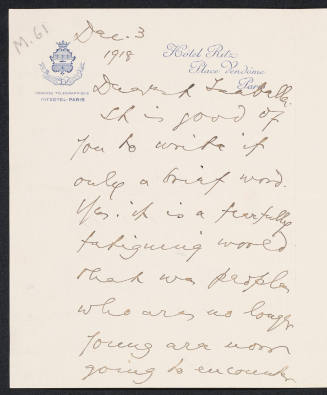 M. 61
Dec. 3
1918
Hotel Ritz
Place Vendôme
Paris
ADRESSE TELEGRAPHIQUE
RITZOTEL-PARIS
Dearest Isabella.
It is good of
you to write if
only a brief word.
Yes. it is a fearfully
fatiguing world
that we peoples
who are no longer
young are now
going to encounter